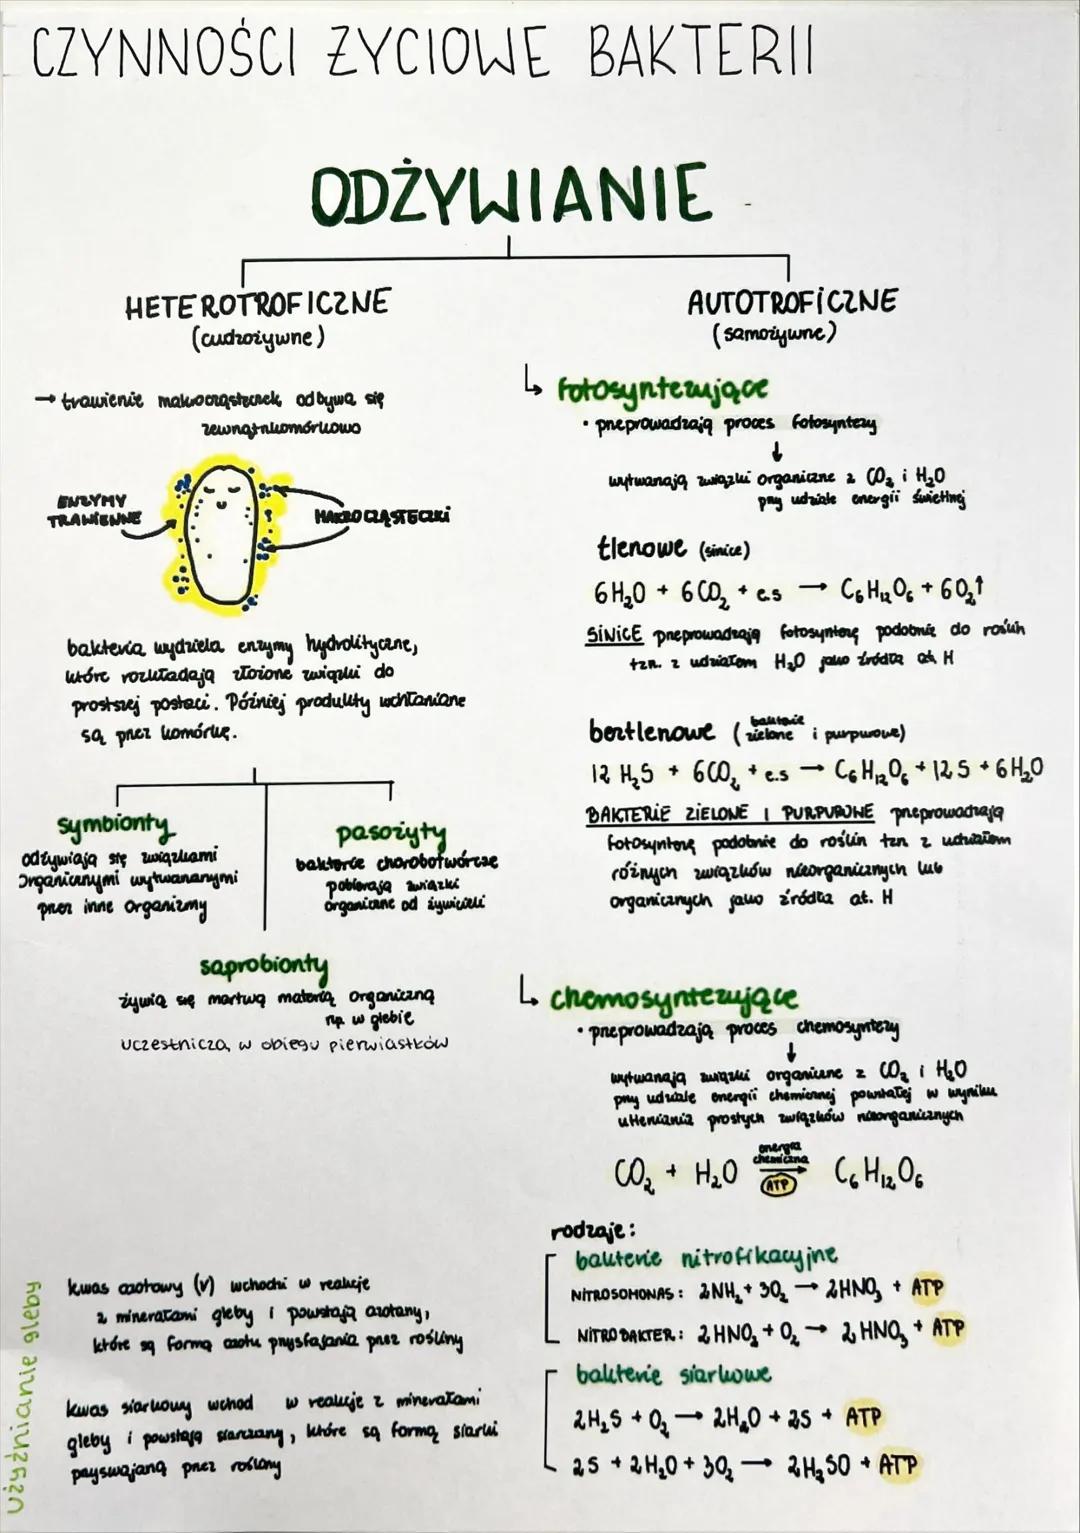 CZYNNOŚCI ŻYCIOWE BAKTERII
ODŻYWIANIE
HETEROTROFICZNE
(cudzożywne)
→ trawienie makrocząsteczek odbywa się
zewnątrzkomórkowo
ENZYMY
TRAWIENNE
MAKROCZĄSTECZKI
bakteria wydziela enzymy hydrolityczne,
które rozkładają złożone związki do
prostszej postaci. Później produkty wchłaniane
są przez komórkę.
symbionty
odżywiają się związkami
organicznymi wytwarzanymi
przez inne organizmy
pasożyty
bakterie chorobotwórcze
pobierają związki
organiczne od żywicieli
saprobionty
żywią się martwą materią organiczną
np. w glebie
uczestniczą w obiegu pierwiastków
AUTOTROFICZNE
(samożywne)
↳ fotosyntezujące
• przeprowadzają proces fotosyntezy
↓
wytwarzają związki organiczne z CO₂ i H₂O
przy udziale energii świetlnej
tlenowe (sinice)
6H₂O + 6CO₂ + e.s → C₆H₁₂O₆ + 6O₂↑
SINICE przeprowadzają fotosyntezę podobnie do roślin
tzn. z udziałem H₂O jako źródła at. H
beztlenowe (bakterie zielone i purpurowe)
12 H₂S + 6CO₂ + e.s → C₆H₁₂O₆ + 12S + 6H₂O
BAKTERIE ZIELONE I PURPUROWE przeprowadzają
fotosyntezę podobnie do roślin tzn z udziałem
różnych związków nieorganicznych lub
organicznych jako źródła at. H
↳ chemosyntezujące
• przeprowadzają proces chemosyntezy
↓
wytwarzają związki organiczne z CO₂ i H₂O
przy udziale energii chemicznej powstałej w wyniku
utleniania prostych związków nieorganicznych
energia
chemiczna
CO₂ + H₂O → C₆H₁₂O₆
ATP
rodzaje:
bakterie nitrofikacyjne
NITROSOMONAS: 2NH₂ + 3O₂ → 2HNO₃ + ATP
NITROBAKTER: 2HNO₂ + O₂ → 2HNO₃ + ATP
bakterie siarkowe
2H₂S + O₂ → 2H₂O + 2S + ATP
2S + 2H₂O + 3O₂ → 2H₂SO + ATP
użyźnianie gleby
kwas azotowy (V) wchodzi w reakcje
z minerałami gleby i powstają azotany,
które są formą azotu przysfajania przez rośliny
kwas siarkowy wchod w reakcje z minerałami
gleby i powstają siarczany, które są formą siarki
przyswajaną przez rośliny